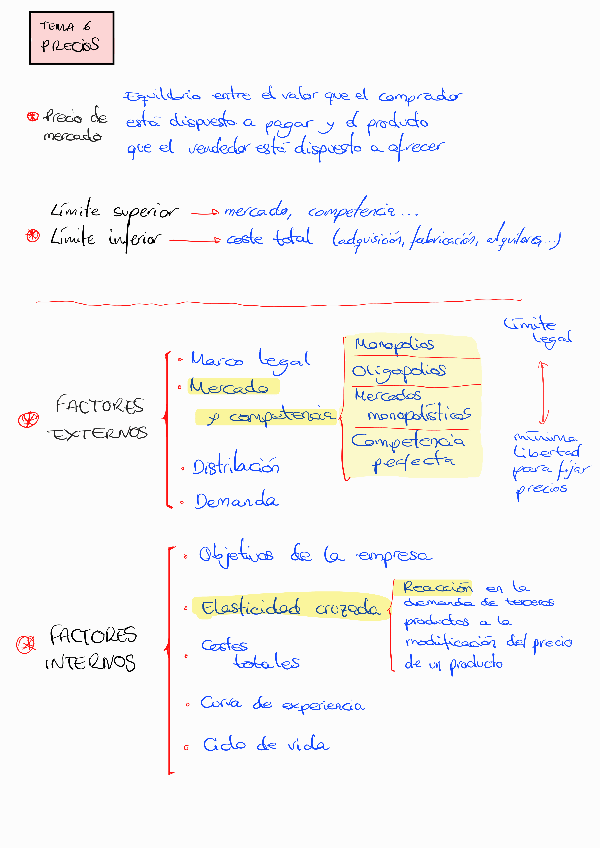 TEMA 6
PRECIOS
Equilibrio entre el valor que el comprador
Precio de está dispuesto a pagar y el producto
mercado que el vendedor está dispuesto a ofrecer
Límite superior → mercado, competencia...
Límite inferior → coste total (adquisición, fabricación, alquileres,...)
Límite
legal
mínima
libertad
para fijar
precios
FACTORES
EXTERNOS
Marco legal
Mercado
y competencia
Monopolios
Oligopolios
Mercados
monopolísticos
Competencia
perfecta
Distribución
Demanda
FACTORES
INTERNOS
Objetivos de la empresa
Elasticidad cruzada
Reacción en la
demanda de terceros
productos a la
modificación del precio
de un producto
Costes
totales
Curva de experiencia
Ciclo de vida